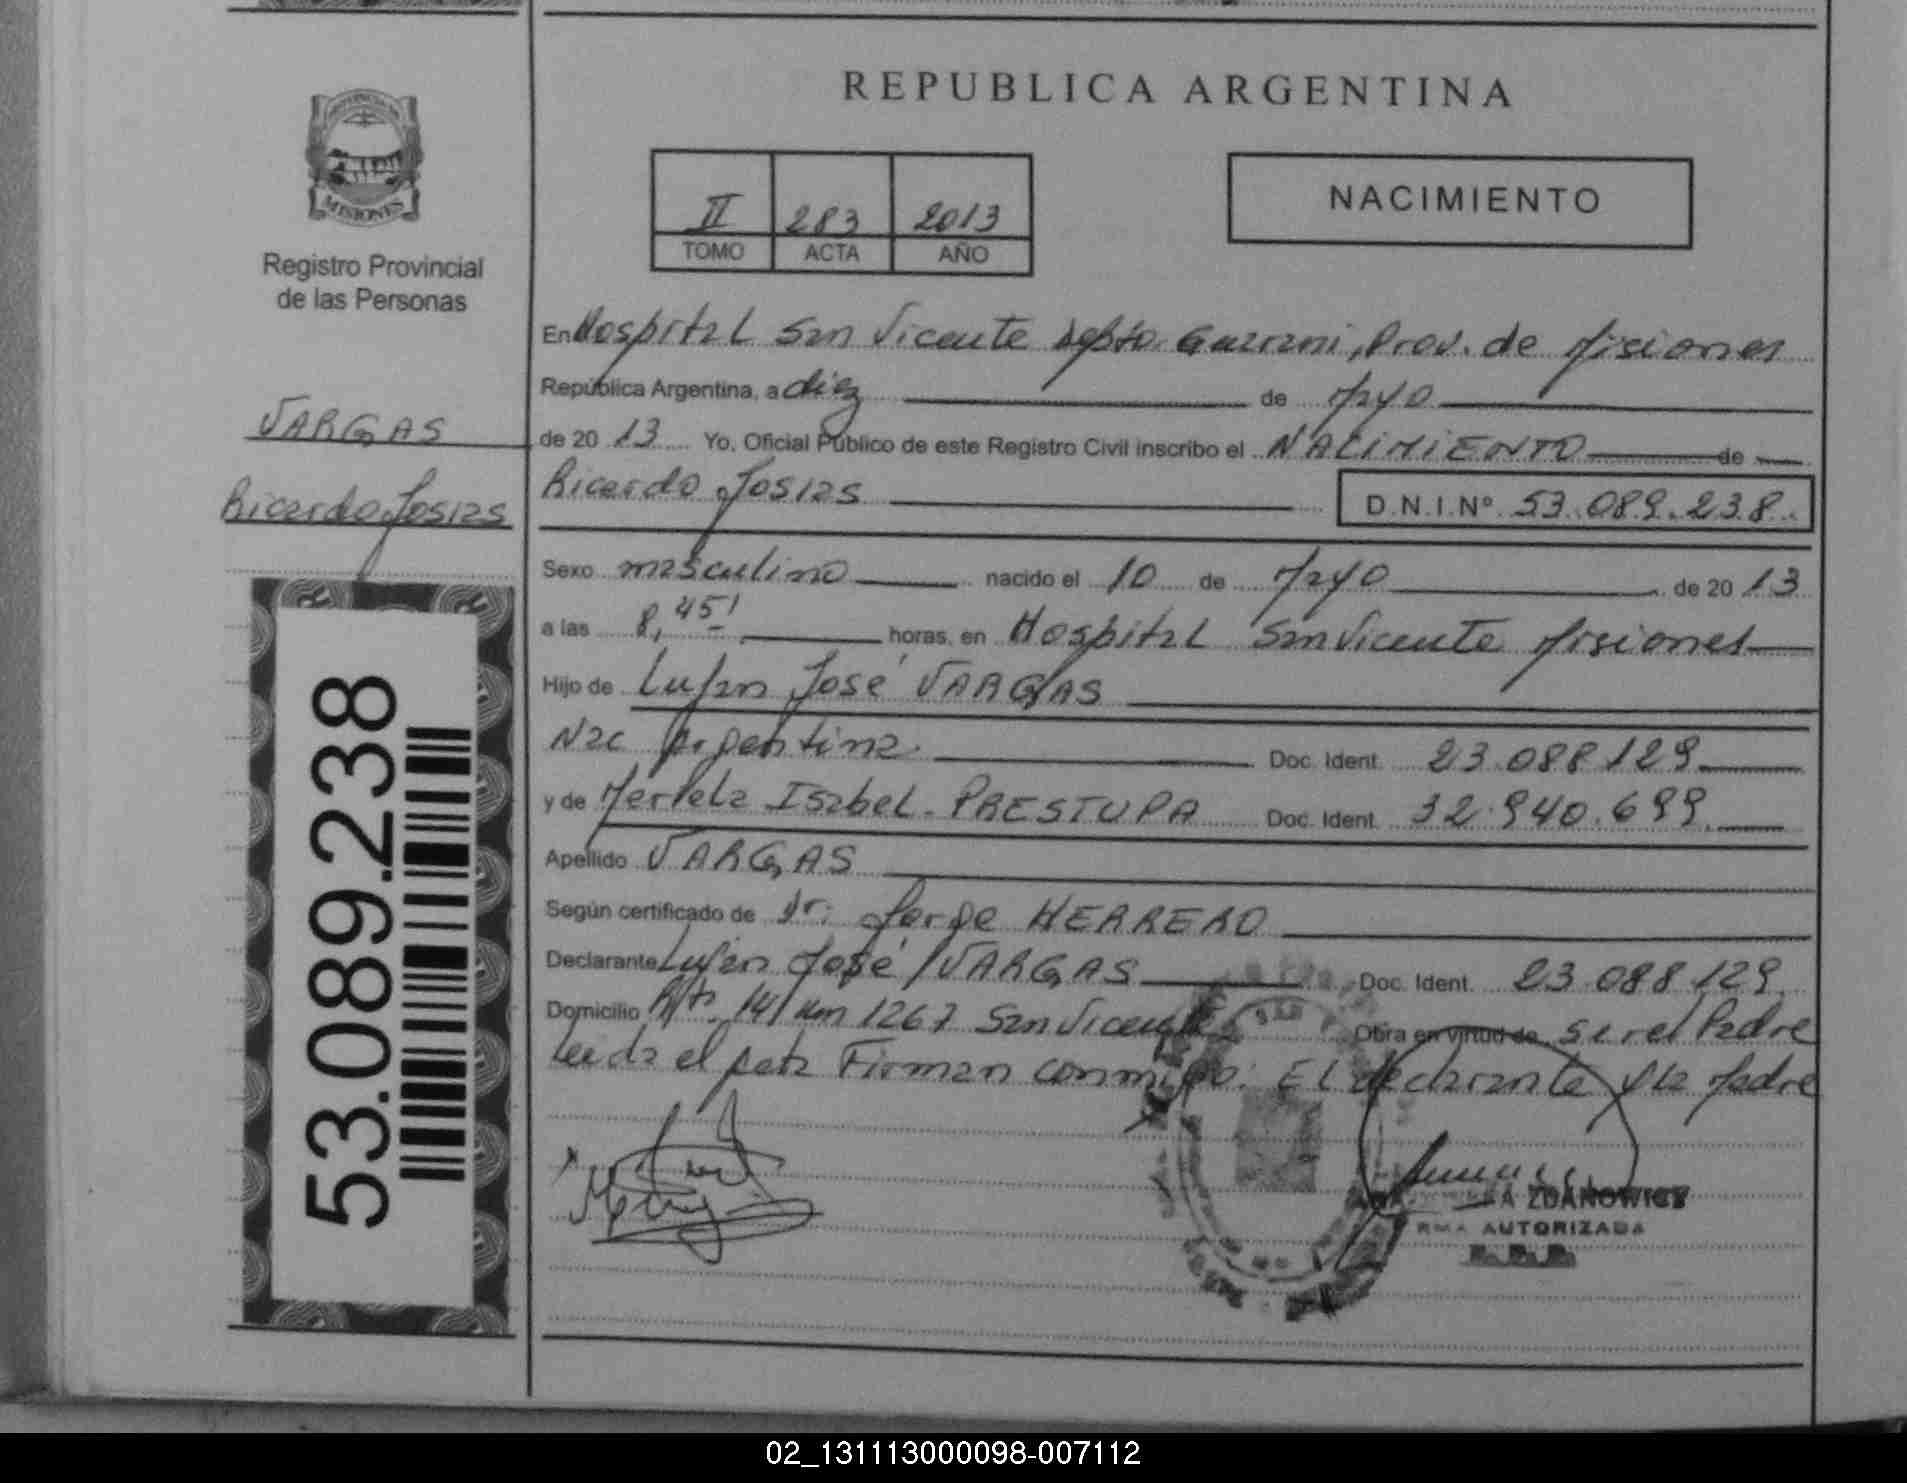 PROVINCIA DE
MISIONES
Registro Provincial
de las Personas
VARGAS
Ricardo Josias
53.089.238
REPUBLICA ARGENTINA
II 283 2013
TOMO ACTA AÑO
NACIMIENTO
En Hospital San Vicente Depto. Guarani, Prov. de Misiones
República Argentina, a diez de Mayo
de 20 13 Yo, Oficial Público de este Registro Civil inscribo el NACIMIENTO de
Ricardo Josias D.N.I.Nº 53.089.238.
Sexo masculino nacido el 10 de Mayo de 20 13
a las 8,45' horas, en Hospital San Vicente Misiones
Hijo de Lujan José VARGAS
Nac Argentina Doc. Ident. 23.088.129
y de Mariela Isabel PRESTUPA Doc. Ident. 32.940.699
Apellido VARGAS
Según certificado de Dr. Jorge HERRERO
Declarante Lujan José VARGAS Doc. Ident. 23.088.129
Domicilio Rta. 14 Km 1267 San Vicente Obra en virtud de ser el Padre
Leida el acta Firman conmigo: El declarante y la Madre
ZDANOWICZ
AUTORIZADA
02_131113000098-007112